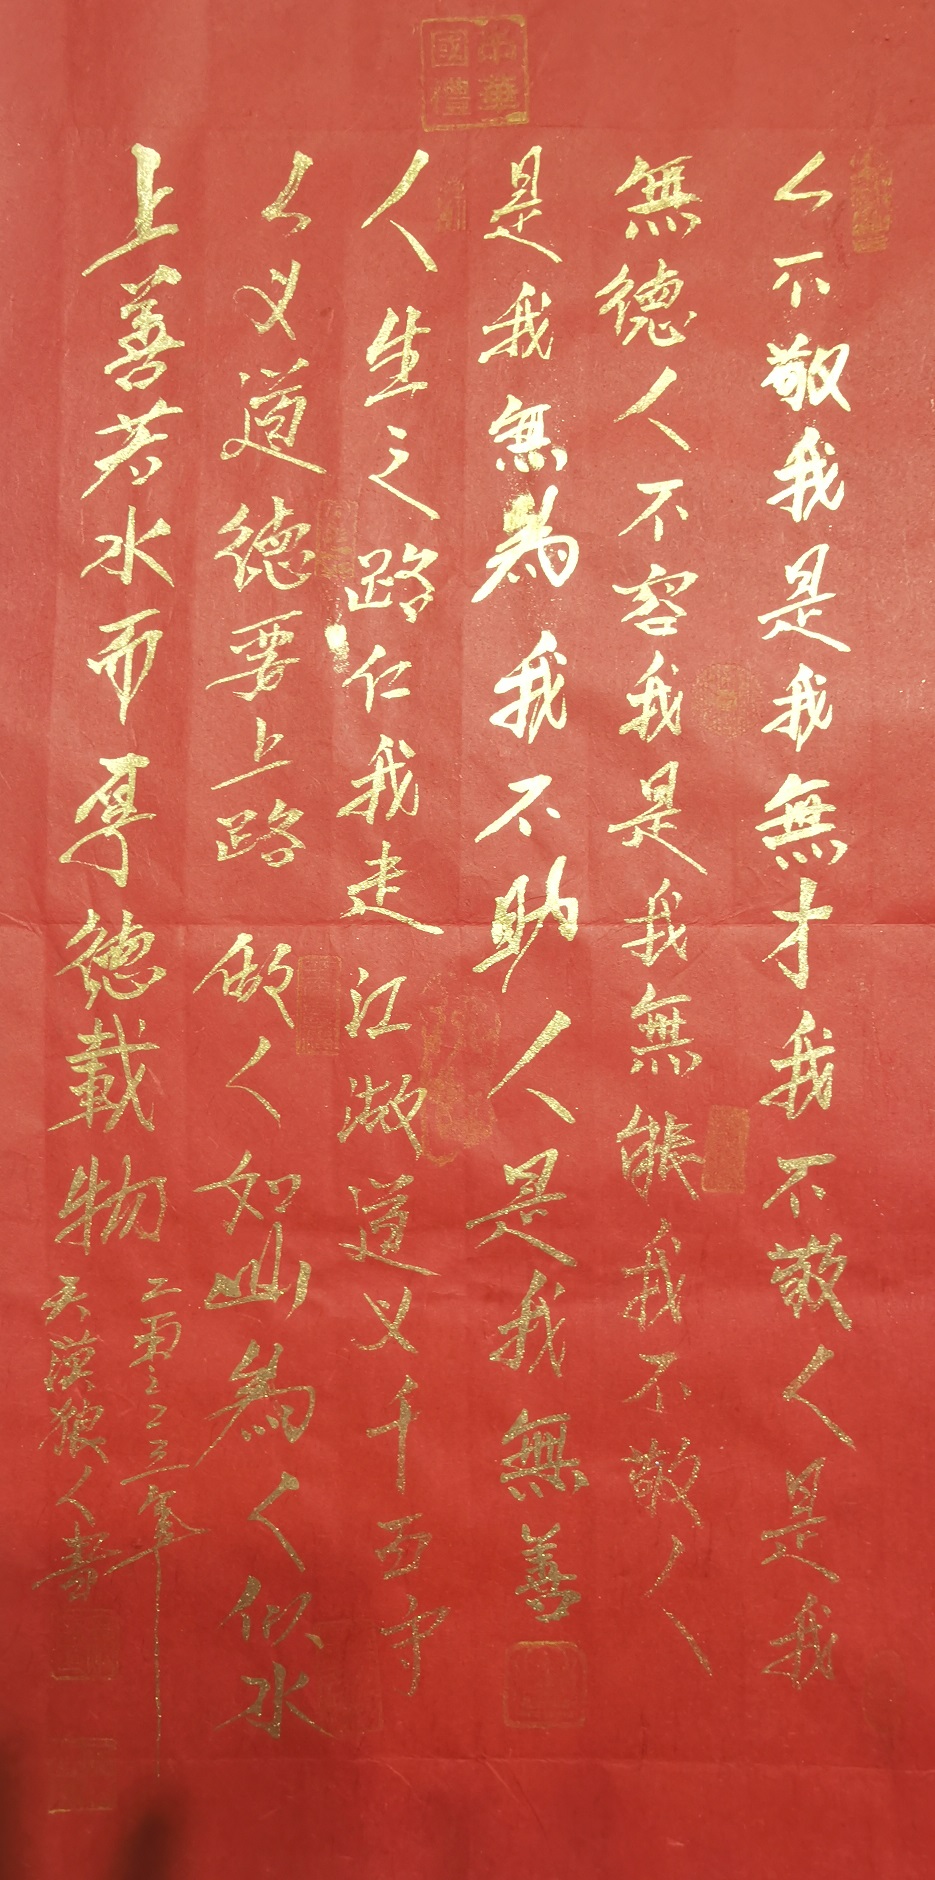 中華國禮
人不敬我是我無才我不敬人是我
無德人不容我是我無能我不敬人
是我無為我不助人是我無善
人生之路仁我走江湖道义千百守
人义道德要上路做人如山為人似水
上善若水而厚德載物
二零二三年
天漢狼人書